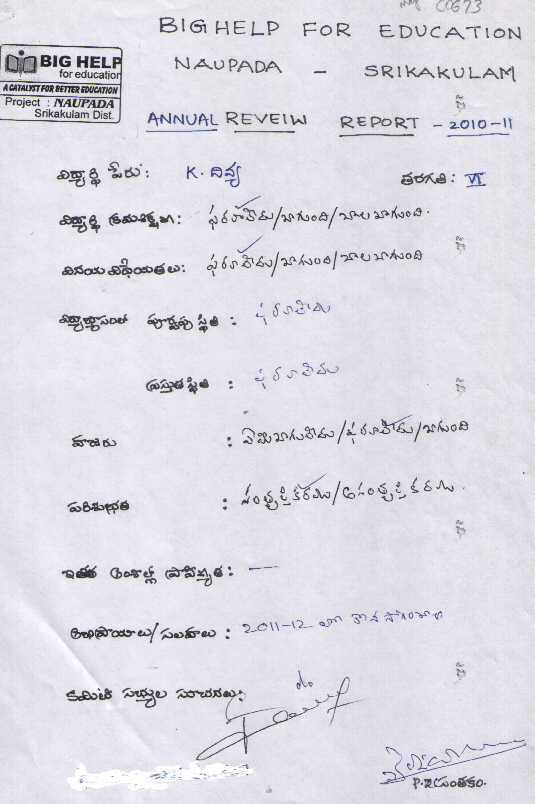 C0673
BIG HELP FOR EDUCATION
NAUPADA - SRIKAKULAM
BIG HELP
for education
A CATALYST FOR BETTER EDUCATION
Project : NAUPADA
Srikakulam Dist.
ANNUAL REVEIW REPORT - 2010-11
విద్యార్థి పేరు: K. దివ్య తరగతి: VI
విద్యార్థి క్రమశిక్షణ: ఫరవాలేదు/బాగుంది/చాలబాగుంది.
వినయ విధేయతలు: ఫరవాలేదు/బాగుంది/చాలబాగుంది
విద్యాభ్యాసంలో పూర్వపు స్థితి : ఫరవాలేదు
ప్రస్తుత స్థితి : ఫరవాలేదు
హాజరు : ఏమిబాగులేదు/ఫరవాలేదు/బాగుంది
పరిశుభ్రత : సంతృప్తికరము/అసంతృప్తికరము.
ఇతర అంశాల్లో ప్రావీణ్యత: —
అభిప్రాయాలు/సలహాలు : 2011-12
కమిటీ సభ్యుల సూచనలు:
సంతకం.